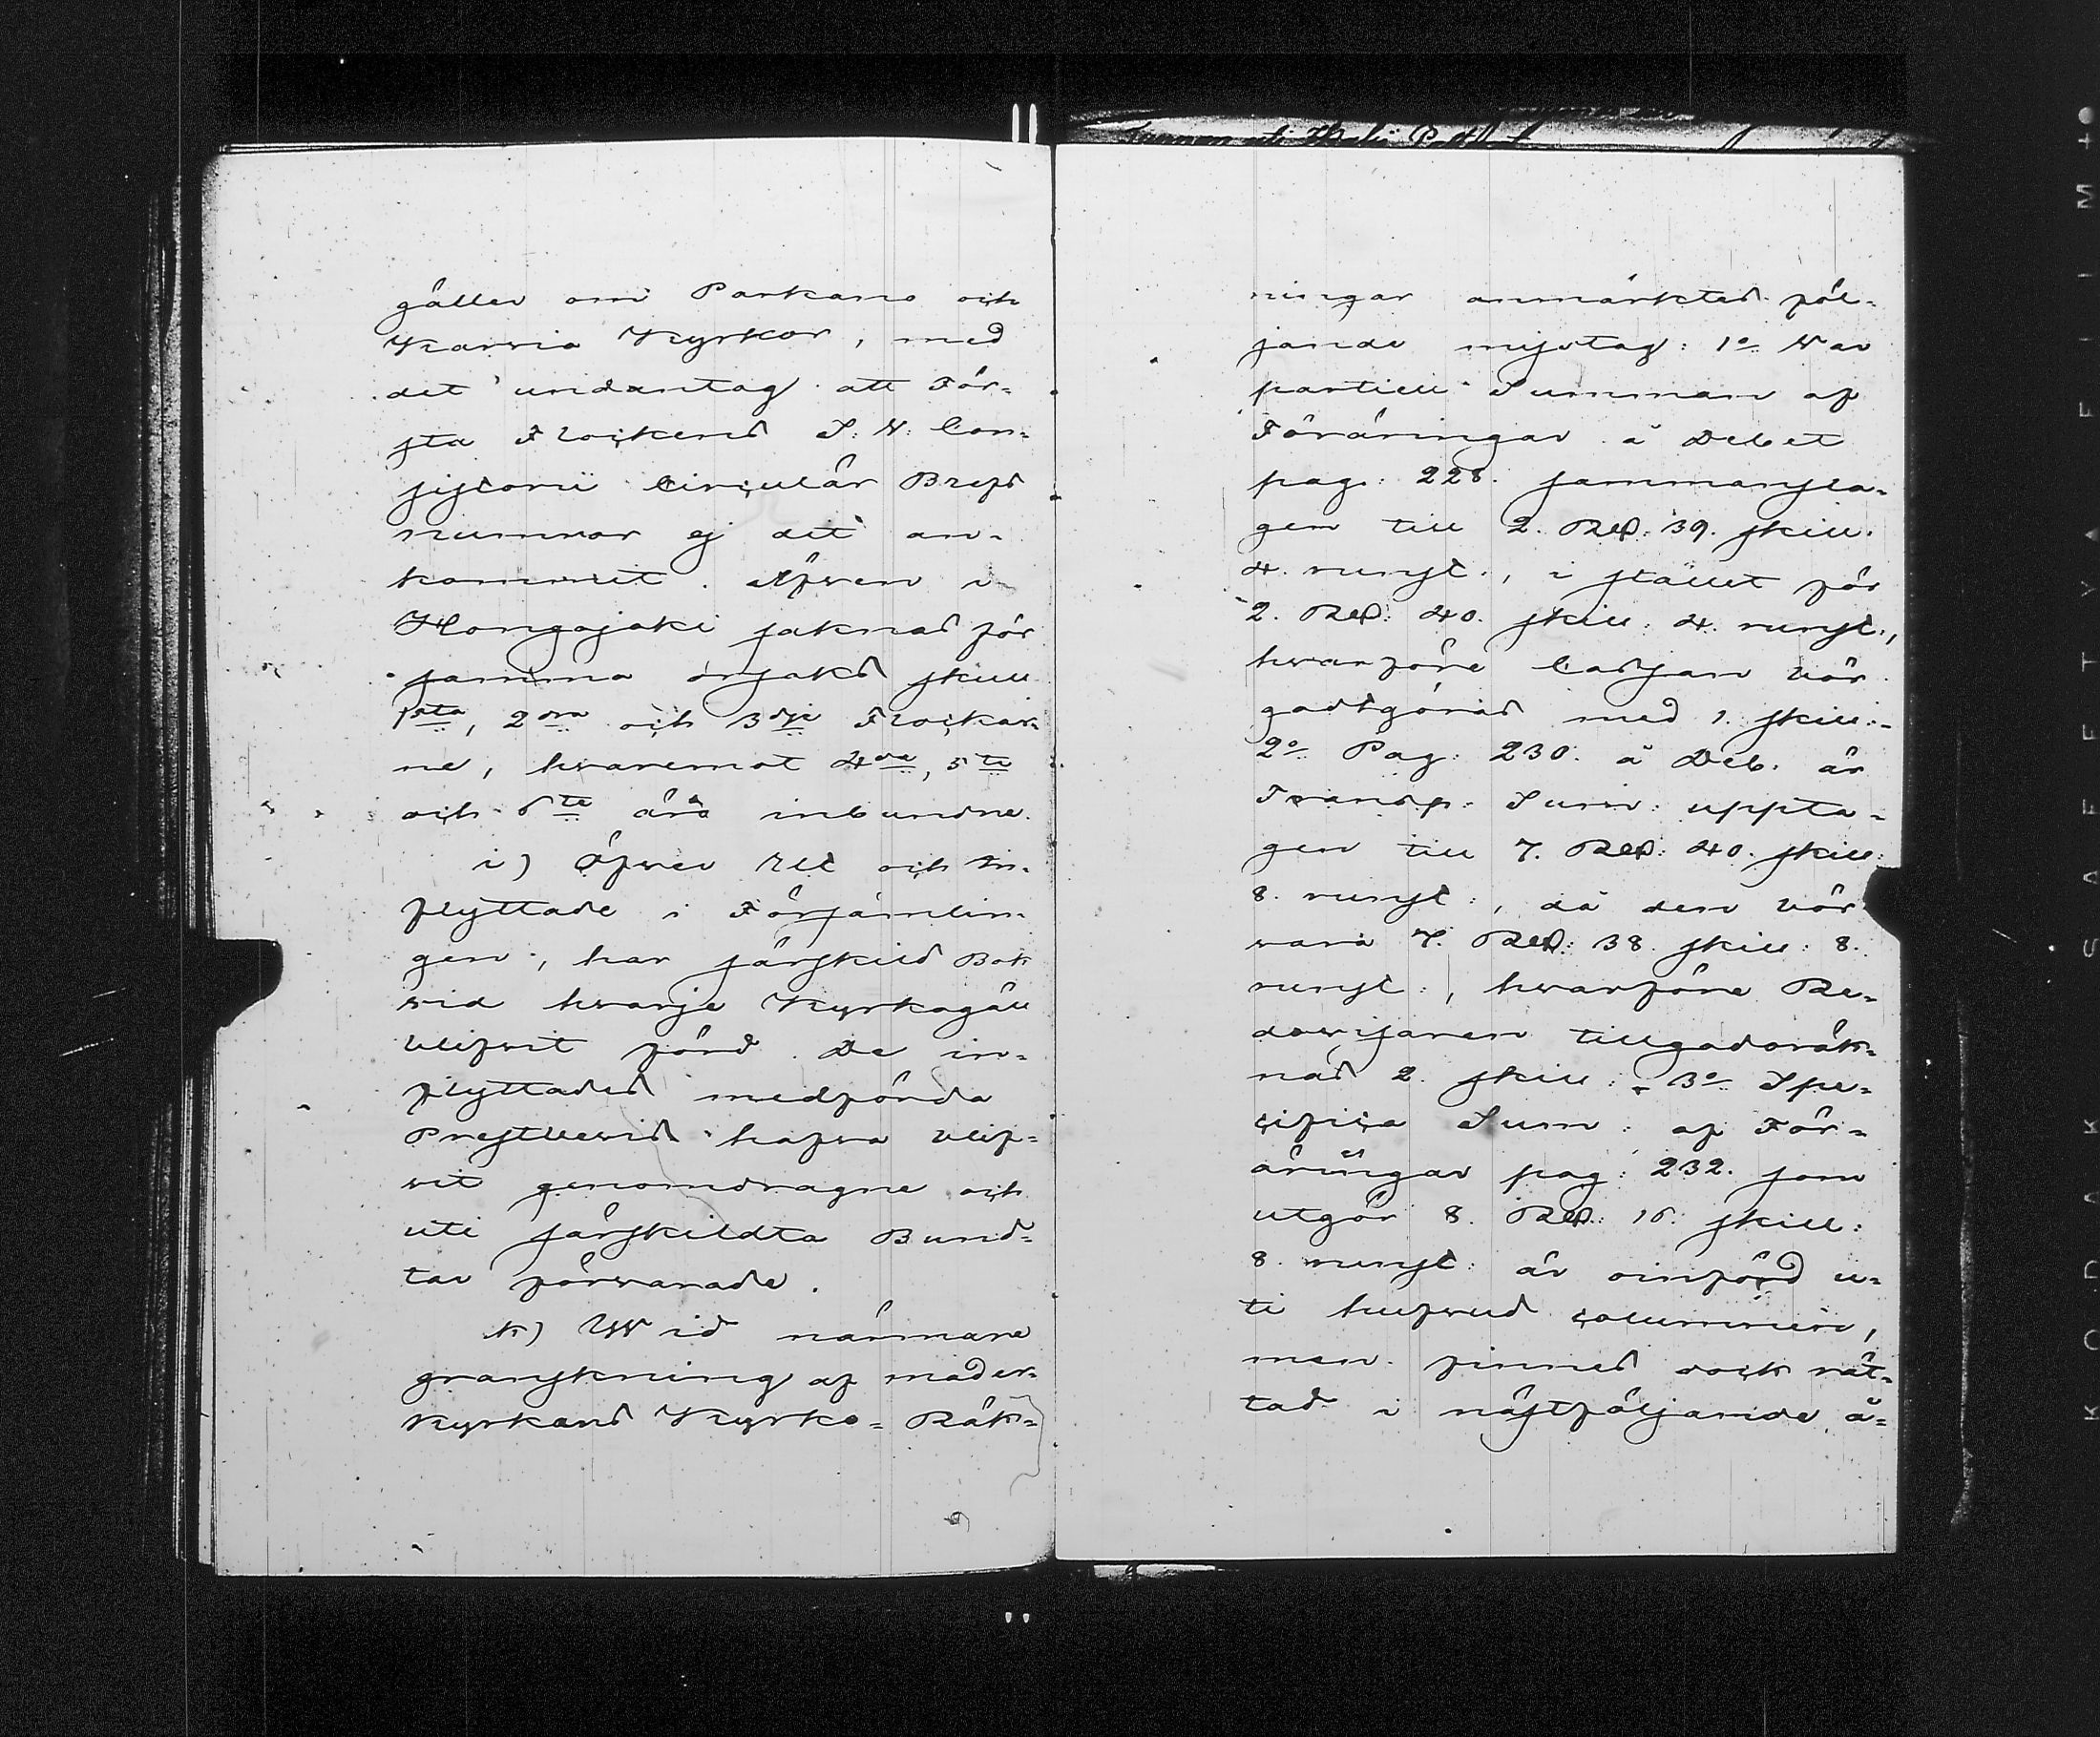 gäller om Parkano och
Karvia Kyrkor, med
det undantag att För-
sta Flockens S: V: Con-
sistorii Circulär Brefs
numror ej dit an-
kommit. Äfven i
Hongojoki saknas för
samma orsaks skull
1sta, 2dra och 3dje Flockar-
ne, hvaremot 4de, 5te
och 6te äro inbundne.
i) Öfver Ut och In-
flyttade i Församlin-
gen, har särskild Bok
vid hvarje Kyrkogäll
blifvit förd. De in-
flyttades medförda
Prestbevis hafva blif-
vit genomdragne och
uti särskildta Bund-
tar förvarade.
k) Wid närmare
granskning af moder-
kyrkans Kyrko-Räk-
ningar anmärktes föl-
jande misstag: 1o Var
partiell Summan af
Föräringar å Debet
pag: 228. sammansla-
gen till 2. Rbd: 39. skill.
4. runst., i stället för
2. Rbd: 40. skill: 4. runst.,
hvarföre Cassan bör
godtgöras med 1. skill:-
2o Pag: 230. å Deb. är
Transp. Sum: uppta-
gen till 7. Rbd: 40. skill:
8. runst:, då den bör
vara 7. Rbd: 38. skill: 8.
runst:, hvarföre Re-
dovisaren tillgodoräk-
nas 2. skill: - 3o Spe-
cifica Sum: af För-
äringar pag: 232. som
utgör 8. Rbd: 16. skill:
8. runst: är oinförd u-
ti hufvud columnen,
men finnes dock rät-
tad i nästföljande å-
KODAK SAFETY FILM